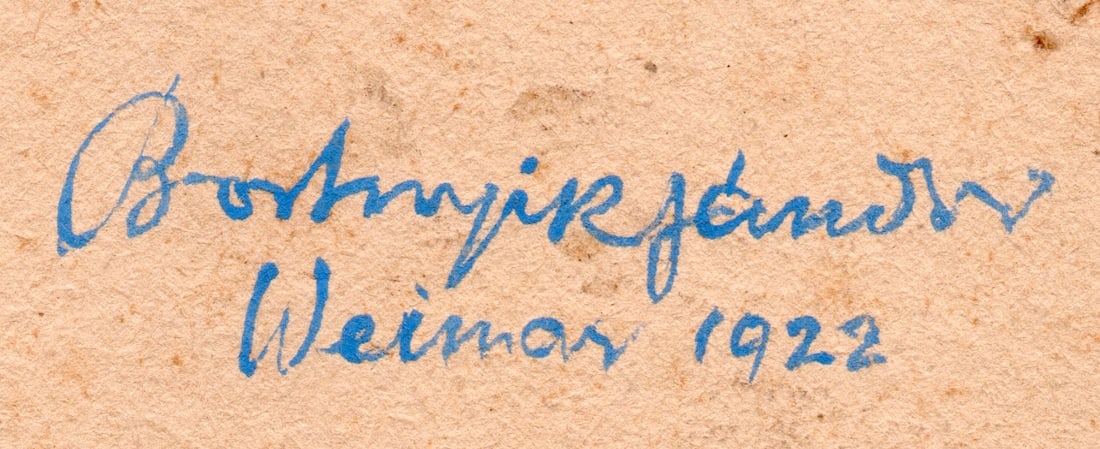 Bortnyik Sándor
Weimar 1922